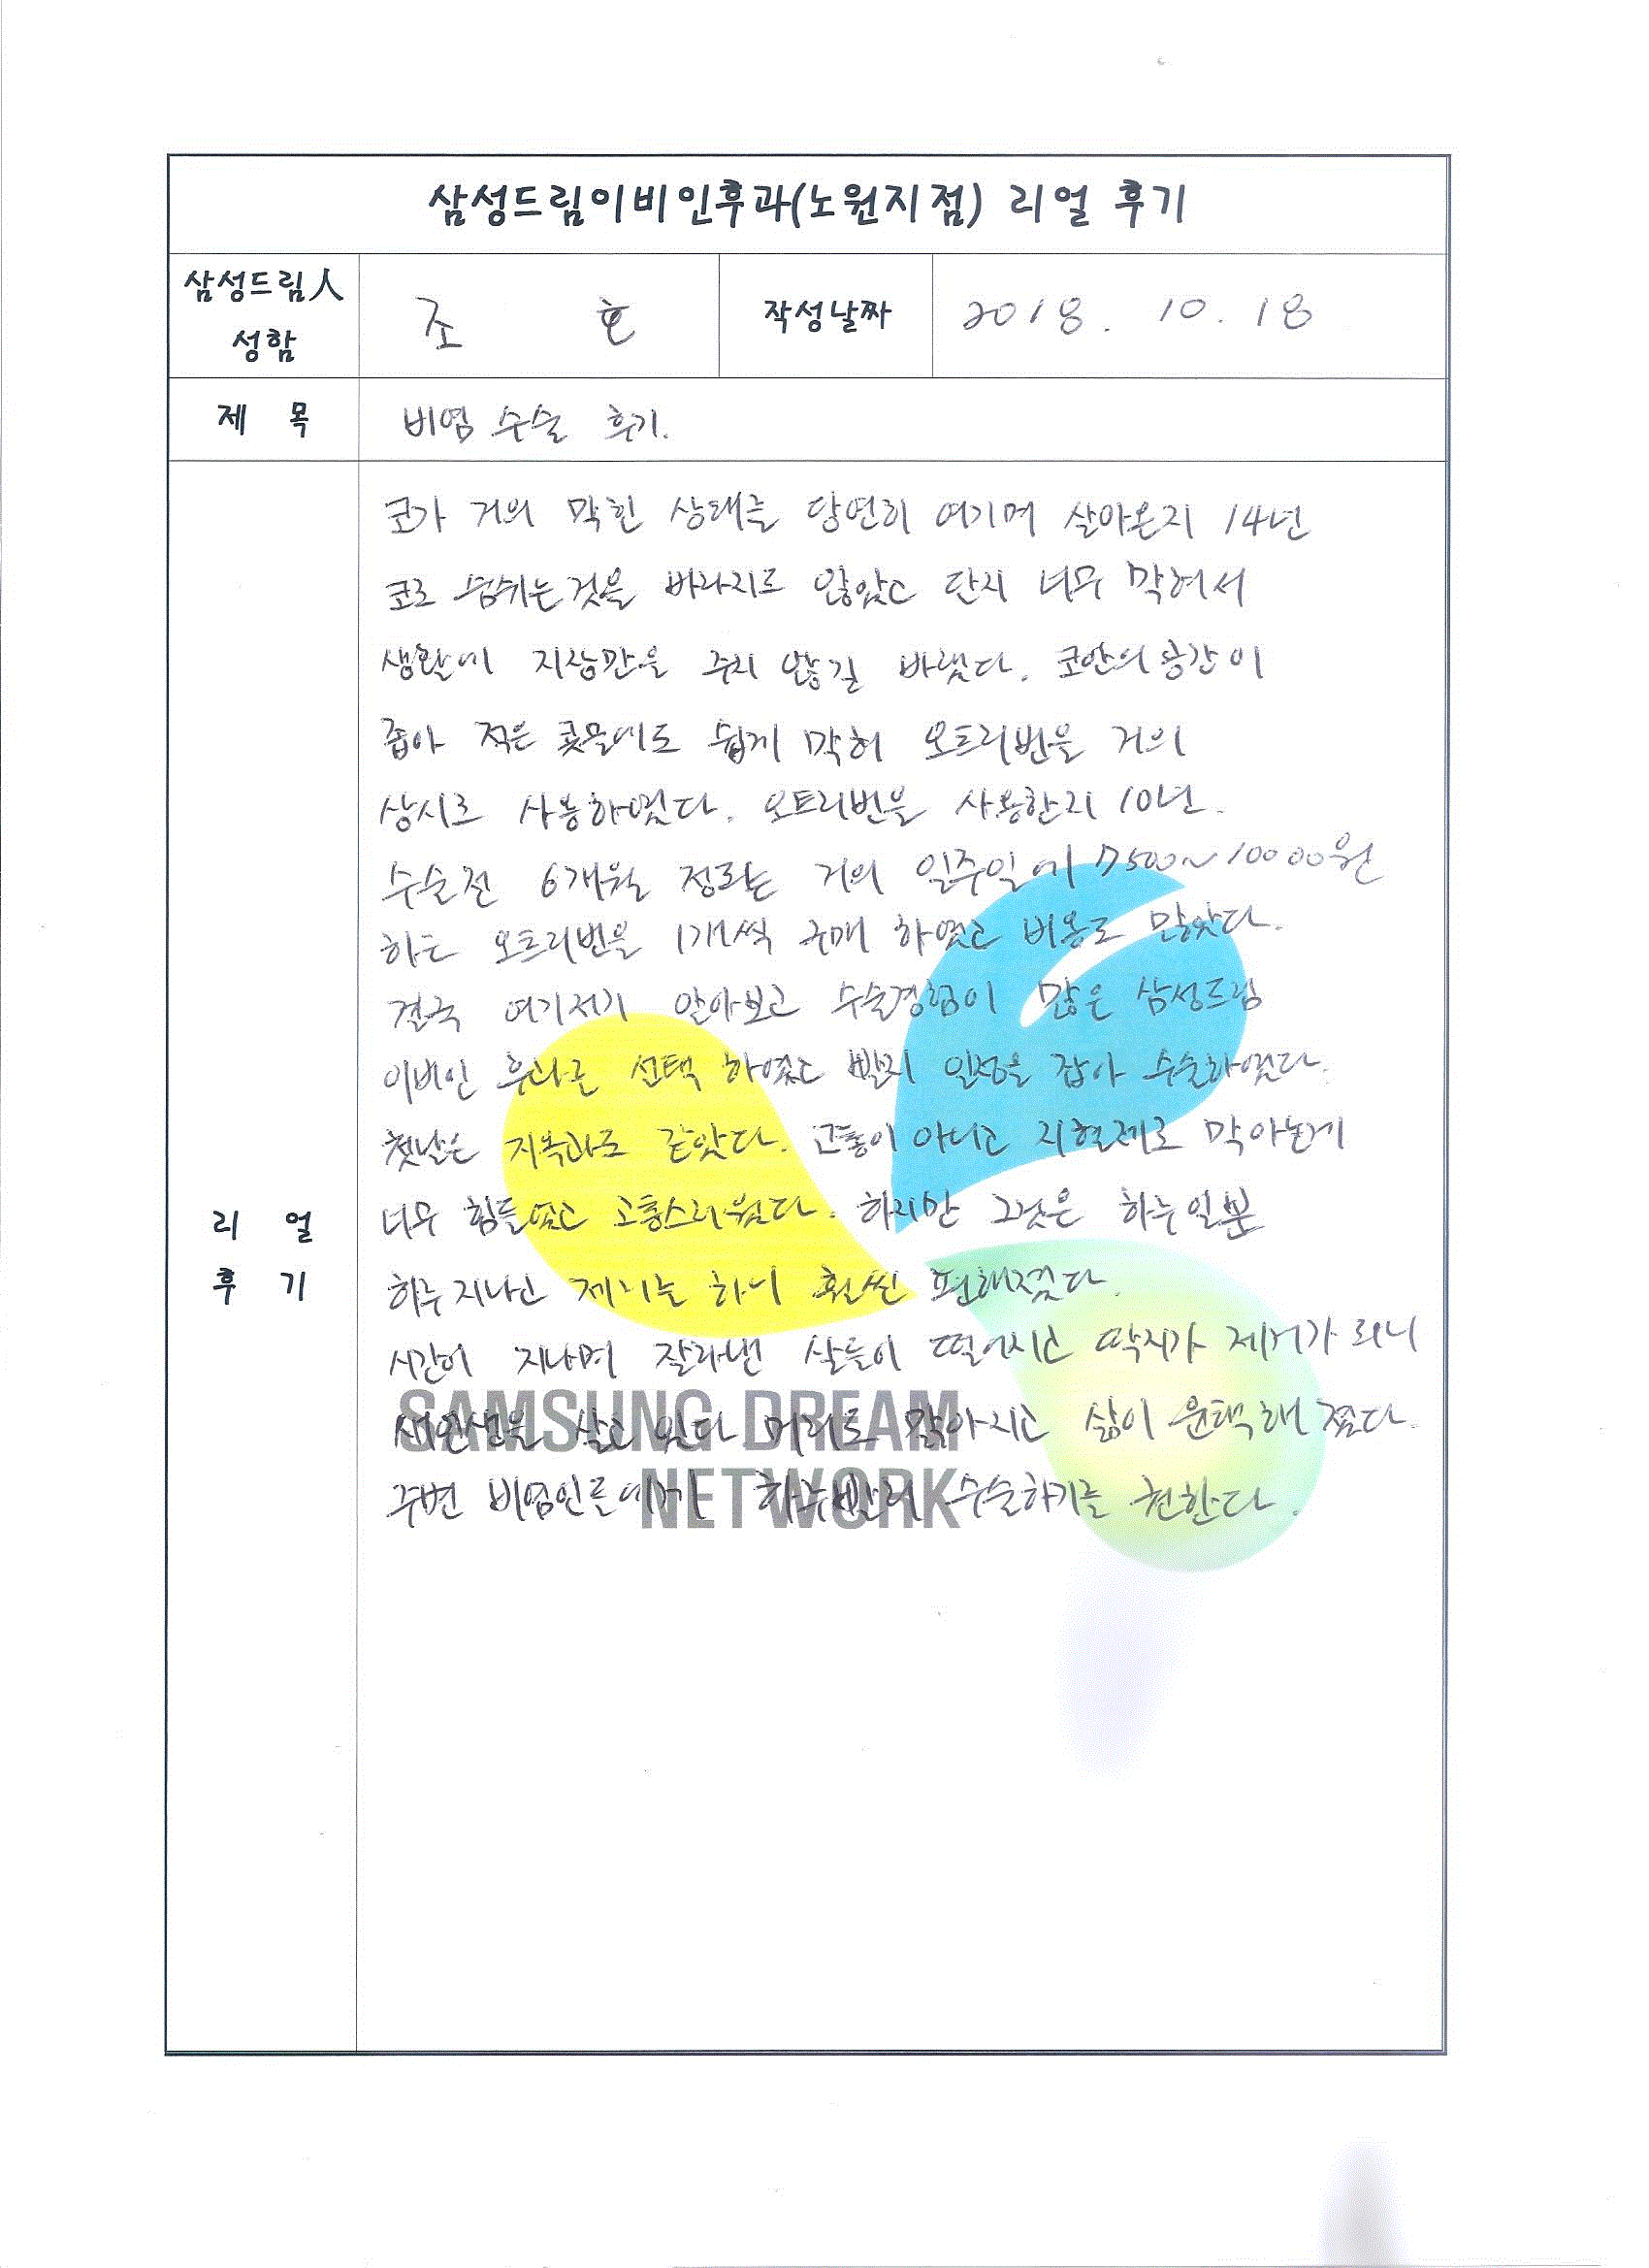 삼성드림이비인후과(노원지점) 리얼 후기
삼성드림人
성함
조 호
작성날짜
2018. 10. 18
제 목
비염 수술 후기.
코가 거의 막힌 상태를 당연히 여기며 살아온지 14년
코로 숨쉬는것을 바라지도 않았고 단지 너무 막혀서
생활에 지장만을 주지 않길 바랬다. 코안의 공간이
좁아 적은 콧물에도 쉽게 막혀 오트리빈을 거의
상시로 사용하였다. 오트리빈을 사용한지 10년.
수술전 6개월 정도는 거의 일주일에 7500~10000원
하는 오트리빈을 1개씩 구매 하였고 비용도 많았다.
결국 여기저기 알아보고 수술경험이 많은 삼성드림
이비인 후과를 선택 하였고 빨리 일정을 잡아 수술하였다.
첫날은 지옥과도 같았다. 고통이 아니고 지혈제로 막아논게
너무 힘들었고 고통스러웠다. 하지만 그것은 하루일뿐
하루 지나고 제거를 하니 훨씬 편해졌다.
시간이 지나며 잘라낸 살들이 떨어지고 딱지가 제거가 되니
새인생을 살고 있다 머리도 맑아지고 삶이 윤택해 졌다.
주변 비염인들에게 하루빨리 수술하기를 권한다.
리 얼
후 기
SAMSUNG DREAM
NETWORK